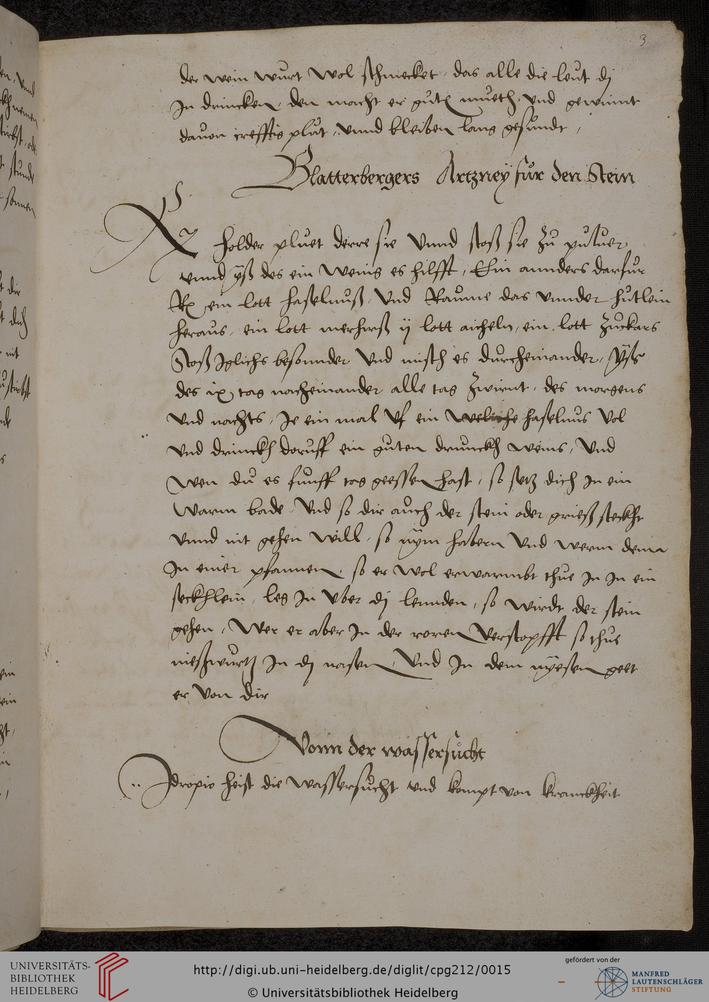 3
der wein wurt wol schmecket das alle die leut dj
In drincken, den macht er gut mueth, vnd gewinnt
dauon creffts plut, vnnd bleiben lang gesundt,
Blatterbergers Artzneÿ für den Stein
holder pluet derre sie vnnd stoß sie zu puluer
vnnd yß des ein wenig es hilfft, Ein annders darfur
Rx ein lott haselnuß, vnd Raume das vnnder hutlein
heraus, ein lott merhirß ij lott aicheln, ein lott zuckars
Stoß Iglichs besonnder vnd misch es durcheinander,
des ix tag nacheinander alle tag zwirnt, des morgens
vnd nachts, Je ein mal vf ein haselnus vol
vnd drinckh doruff ein guten drunckh weins, vnd
wen du es funff tag geessen hast, so setz dich In ein
warm bade, vnd so dir auch der stein oder grieß steckht
vnnd nit gehen will, so nym habern vnd werm denn
In einer pfannen, so er wol erwarmbt thue In In ein
secklein, leg In vber dj lennden, so wirdt der stein
gehen, Wer er aber In der roren verstopfft so thue
nießwurtz In dj nasen, vnd In dem nyesen geet
er von dir
Vonn der wassersucht
Idropio heist die wassersucht vnd kompt von kranckheit
UNIVERSITÄTS-
BIBLIOTHEK
HEIDELBERG
http://digi.ub.uni-heidelberg.de/diglit/cpg212/0015
© Universitätsbibliothek Heidelberg
gefördert von der
MANFRED
LAUTENSCHLÄGER
STIFTUNG